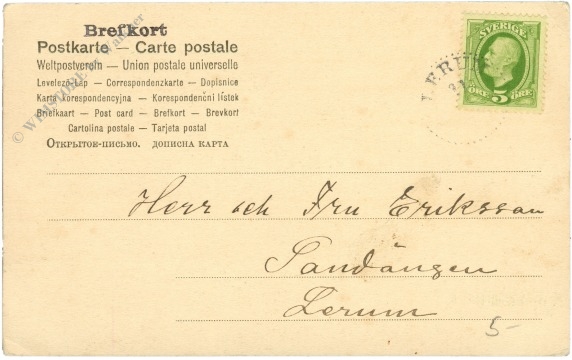 Brefkort
Postkarte — Carte postale
Weltpostverein — Union postale universelle
Levelező-Lap — Correspondenzkarte — Dopisnice
Karta korespondencyjna — Korespondenční lístek
Briefkaart — Post card — Brefkort — Brevkort
Cartolina postale — Tarjeta postal
Открытое-письмо. дописна карта
SVERIGE
ÖRE 5 ÖRE
LERUM
Herr och Fru Eriksson
Sandängen
Lerum
5-